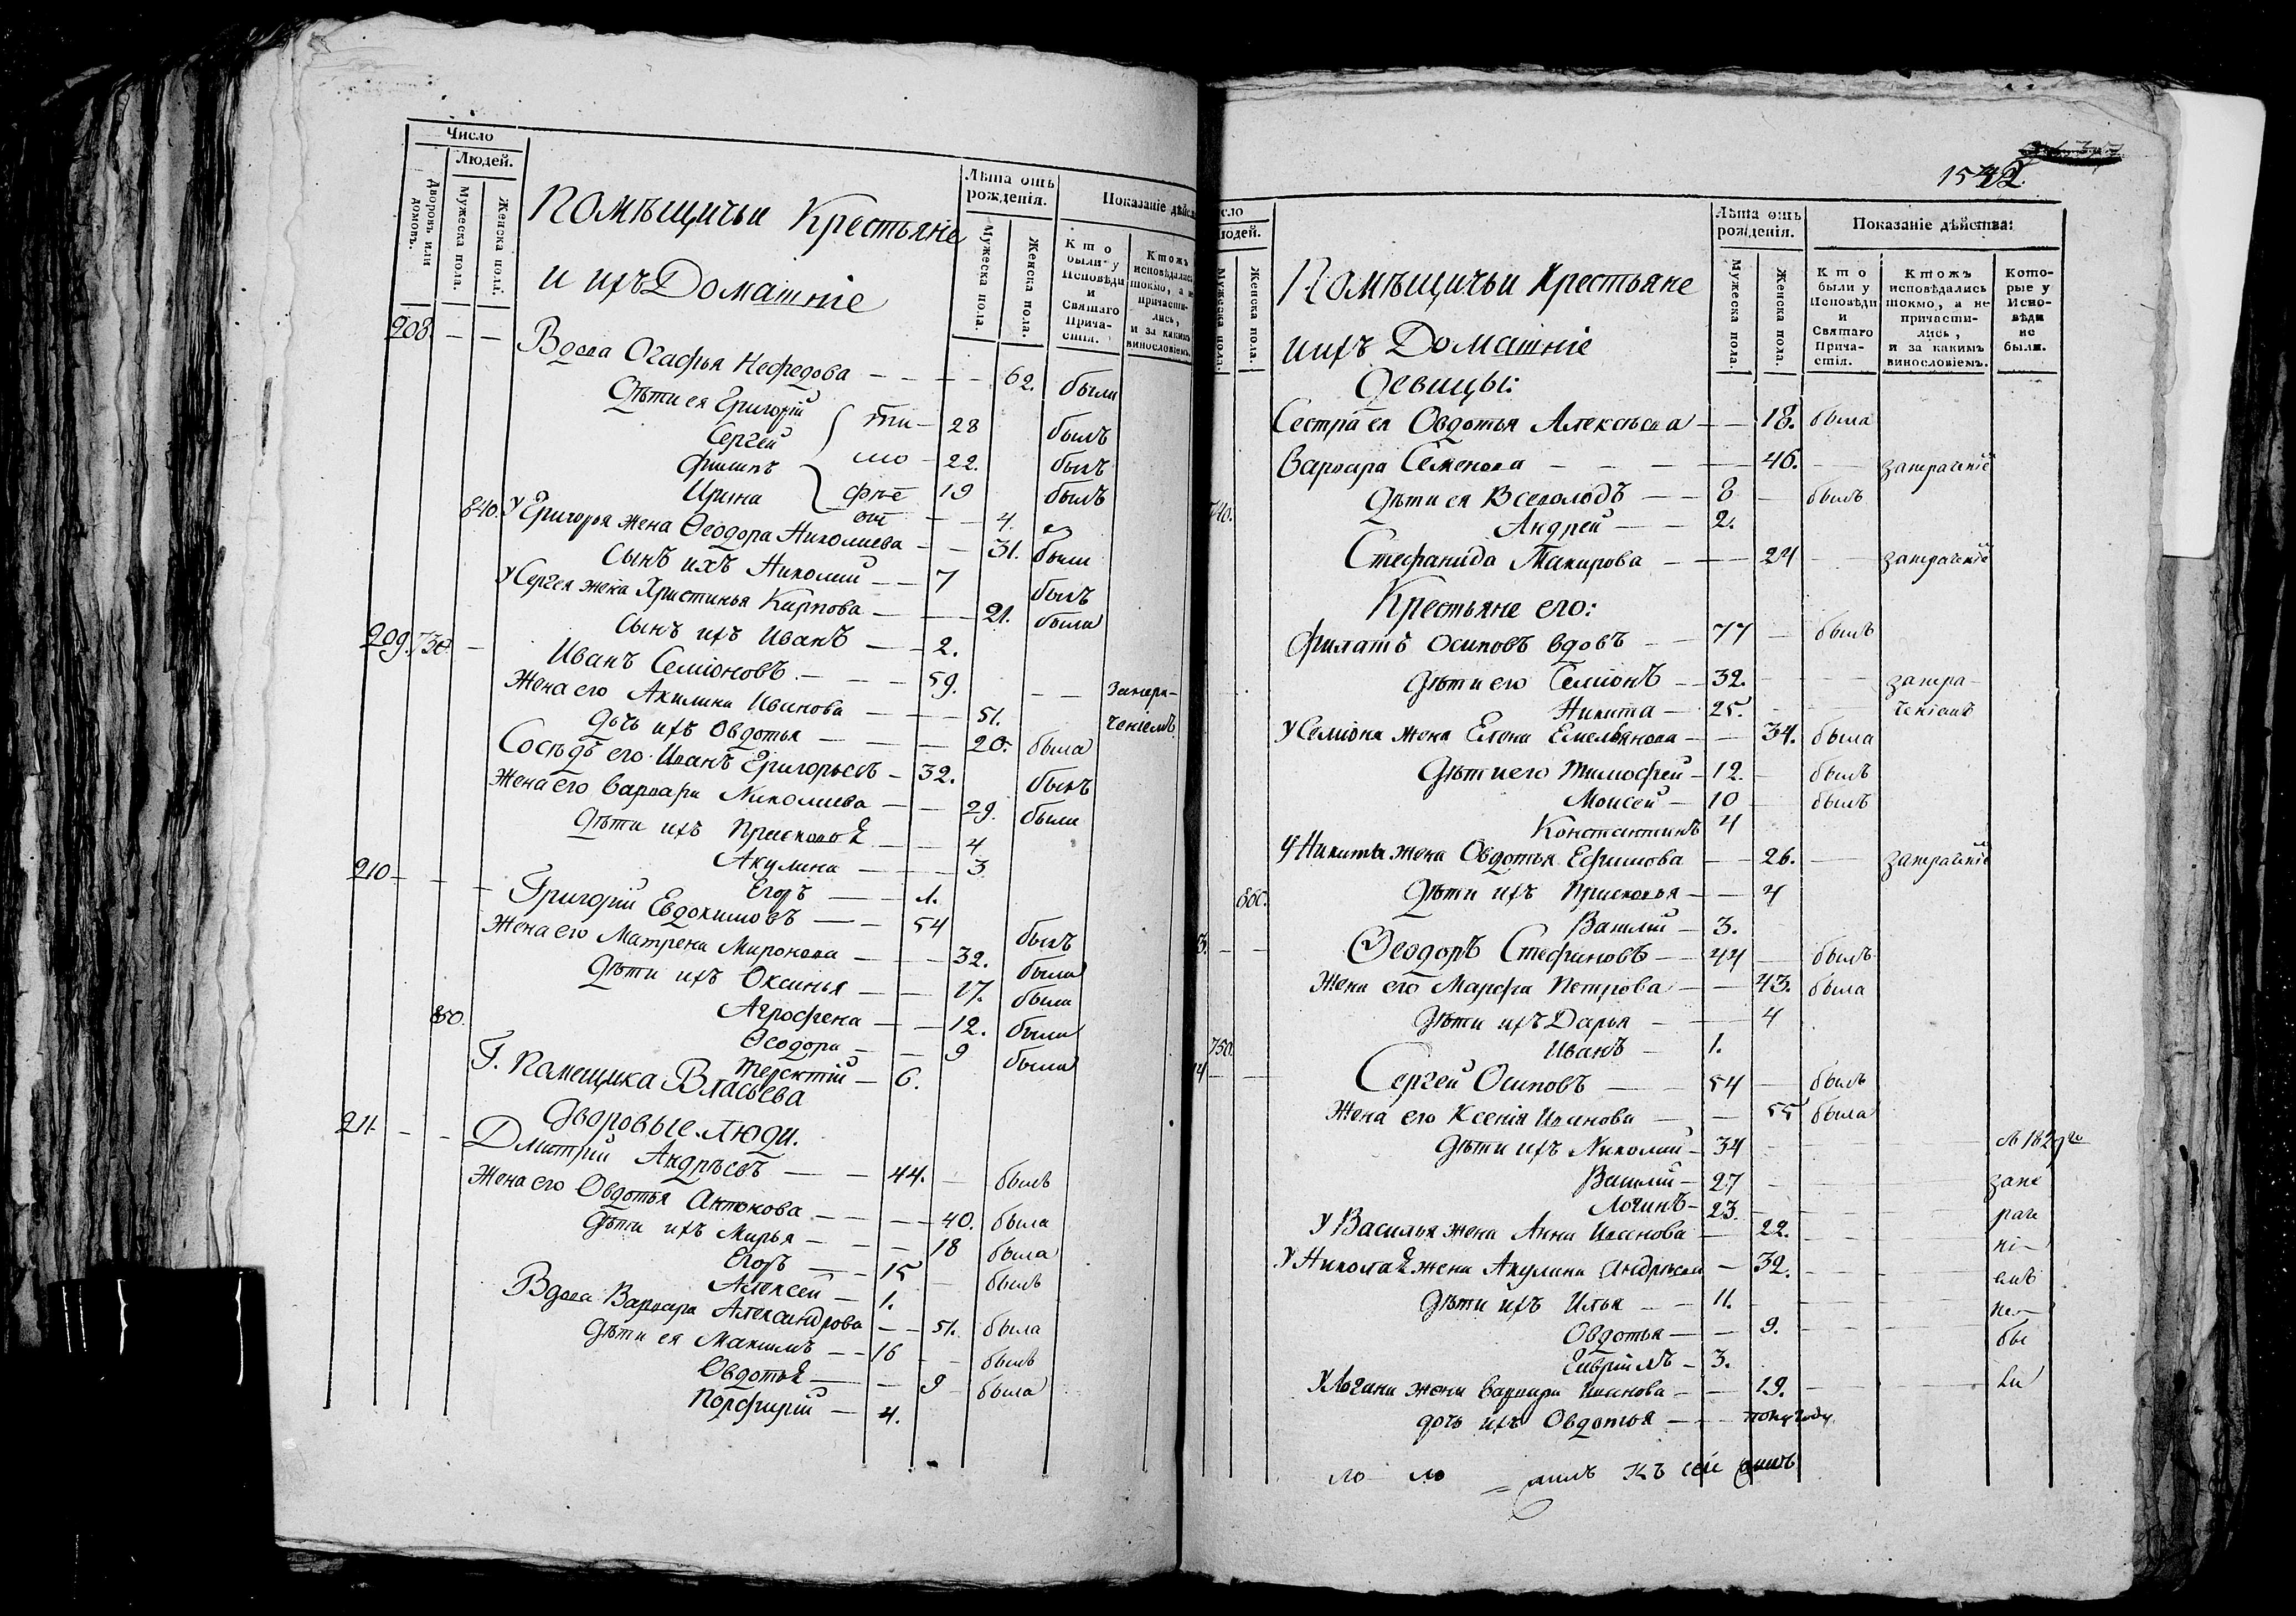 Число
Людей.
Дворовъ или домовъ.
Мужеска пола.
Женска пола.
Помѣщичьи Крестьяне
и ихъ Домашніе
Лѣта отъ рожденія.
Мужеска пола.
Женска пола.
Показаніе
Кто были у Исповѣди и Святаго Причастія.
Ктожъ исповѣдались токмо, а не причастились, и за какимъ винословіемъ.
208. — — Вдова Огафья Нефедова — — 62. была
Дѣти ея Григорій 28 былъ
Сергей 22. былъ
Филипъ 19 былъ
Ирина 4.
840. У Григорья жена Ѳеодора Николаева — — 31. была
Сынъ ихъ Николай — — 7 былъ
У Сергея жена Христинья Карпова — — 21. была
Сынъ ихъ Иванъ — — 2.
209. 730. — Иванъ Семіоновъ — — 59. — — запра-
Жена его Акилина Иванова — — 51. ченіемъ
Дочь ихъ Овдотья — — 20. была
Сосѣдъ его Иванъ Григорьевъ — 32. былъ
Жена его Варвара Николаева — — 29. была
Дѣти ихъ — — 4
Акулина — — 3
Егоръ — — 1.
210 — — — Григорій Евдокимовъ — — 54 былъ
Жена его Матрена Миронова — — 32. была
Дѣти ихъ Оксинья — — 17. была
Агрофена — — 12. была
850. Ѳеодора — — 9 была
— 6.
Г. Помещика Власьева
Дворовые люди.
211. — — Дмитрій Андрѣевъ — — 44. — былъ
Жена его Овдотья Антонова — — 40. была
Дѣти ихъ Марья — — 18 была
Егоръ — — 15 — былъ
Алексей — 1.
Вдова Варвара Александрова — — 51. была
Дѣти ея Максимъ — — 16 — былъ
Овдотья — — 9 была
Порфирій — 4.
Помѣщичьи Крестьяне
и ихъ Домашніе
Лѣта отъ рожденія.
Мужеска пола.
Женска пола.
Показаніе дѣйства:
Кто были у Исповѣди и Святаго Причастія.
Ктожъ исповѣдались токмо, а не причастились, и за какимъ винословіемъ.
Которые у Исповѣди не были.
Девицы:
Сестра ея Овдотья Алексѣева — — 18. была
Варвара Семенова — — 46. —
Дѣти ея Всеволодъ — — 8 — былъ
740. Андрей — — 2.
Стефанида Макирова — — 24
Крестьяне его:
Филатъ Осиповъ вдовъ — — 77 — былъ
Дѣти его Семіонъ — 32. запра-
Никита — 25. ченіемъ
У Семіона жена Елена Емельянова — — 34. была
Дѣти его Тимофей — 12. — былъ
Моисей — 10 былъ
Константинъ 4
У Никиты жена Овдотья Ефимова — — 26. —
860. Дѣти ихъ — — 4
Василій — 3.
3. — — Ѳеодоръ Стефановъ — 44 — былъ
Жена его Марфа Петрова — — 43. была
Дѣти ихъ Дарья — — 4
750. Иванъ — 1.
14 — — Сергей Осиповъ — — 54 — былъ
Жена его Ксенія Иванова — — 55 была
Дѣти ихъ Николай — 34
Василій — 27
Логинъ — 23.
У Василья жена Анна — 22.
У Николая жена Акулина — 32.
Дѣти ихъ Илья — — 11.
Овдотья — — 9.
— 3.
У Логина жена Варвара Иванова — — 19.
дочь ихъ Овдотья — — полугоду